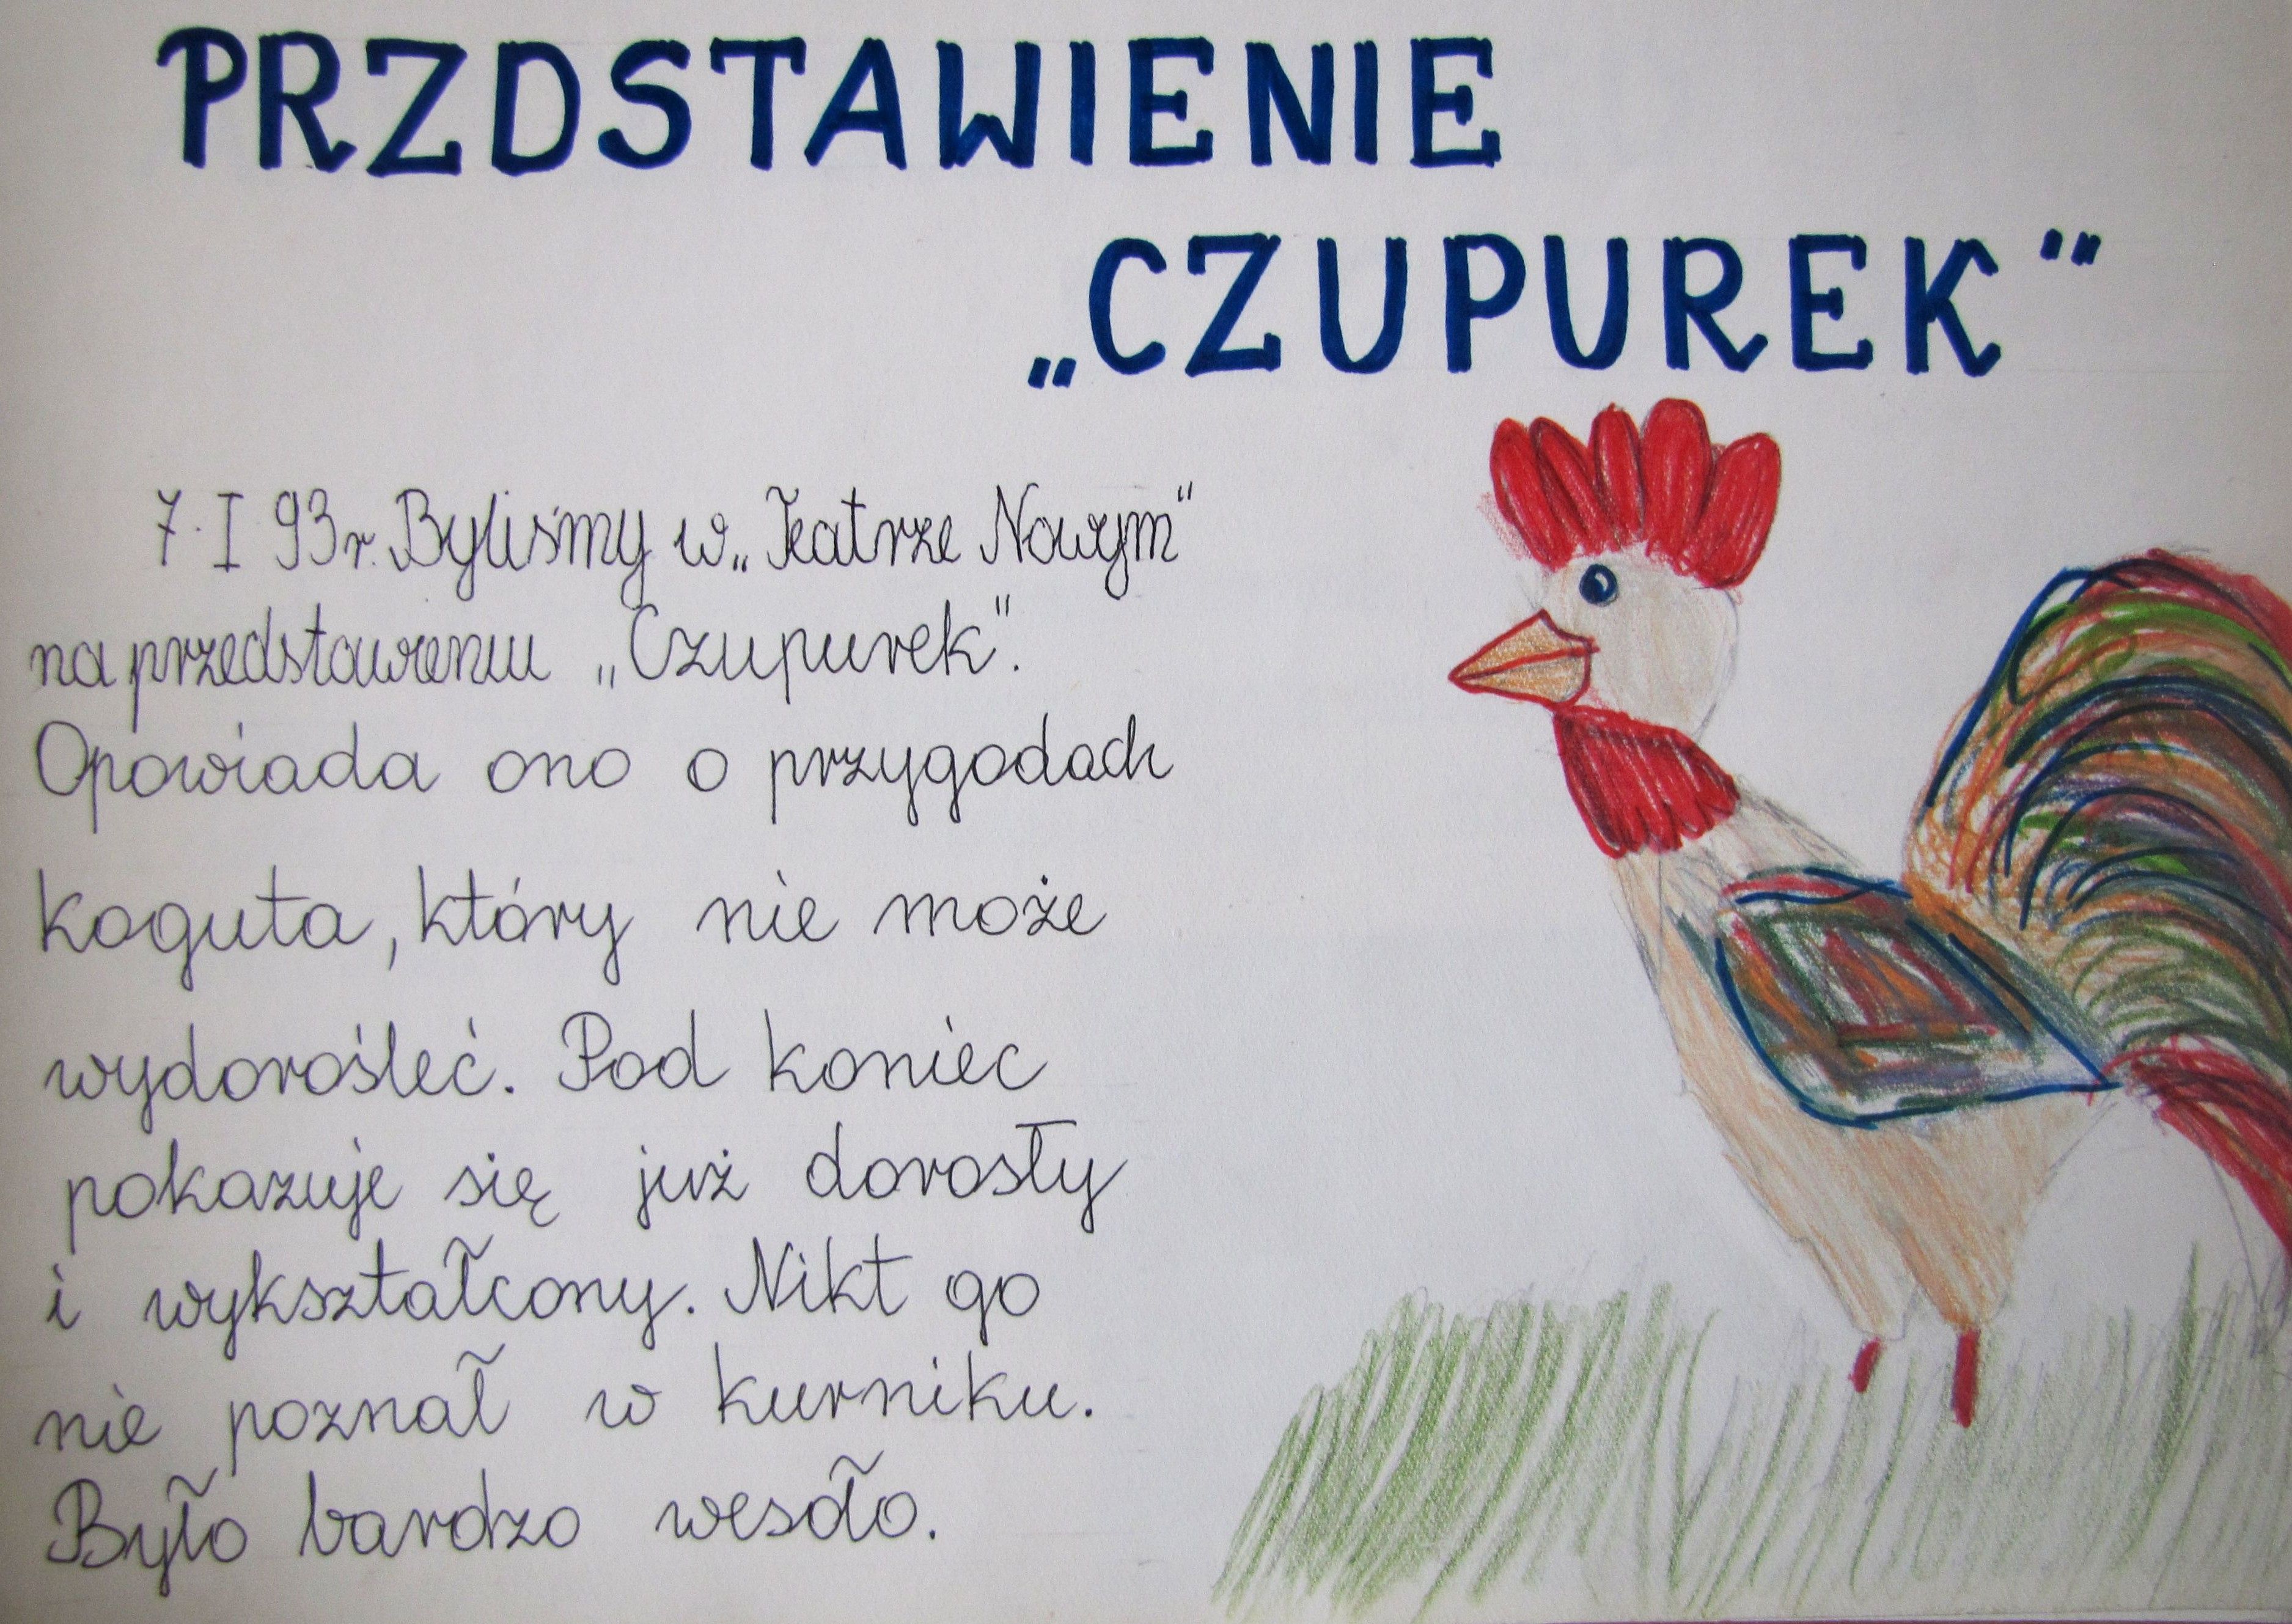 PRZDSTAWIENIE
„CZUPUREK”
7.I 93r. Byliśmy w „Teatrze Nowym”
na przedstawieniu „Czupurek”.
Opowiada ono o przygodach
koguta, który nie może
wydorośleć. Pod koniec
pokazuje się już dorosły
i wykształcony. Nikt go
nie poznał w kurniku.
Było bardzo wesoło.